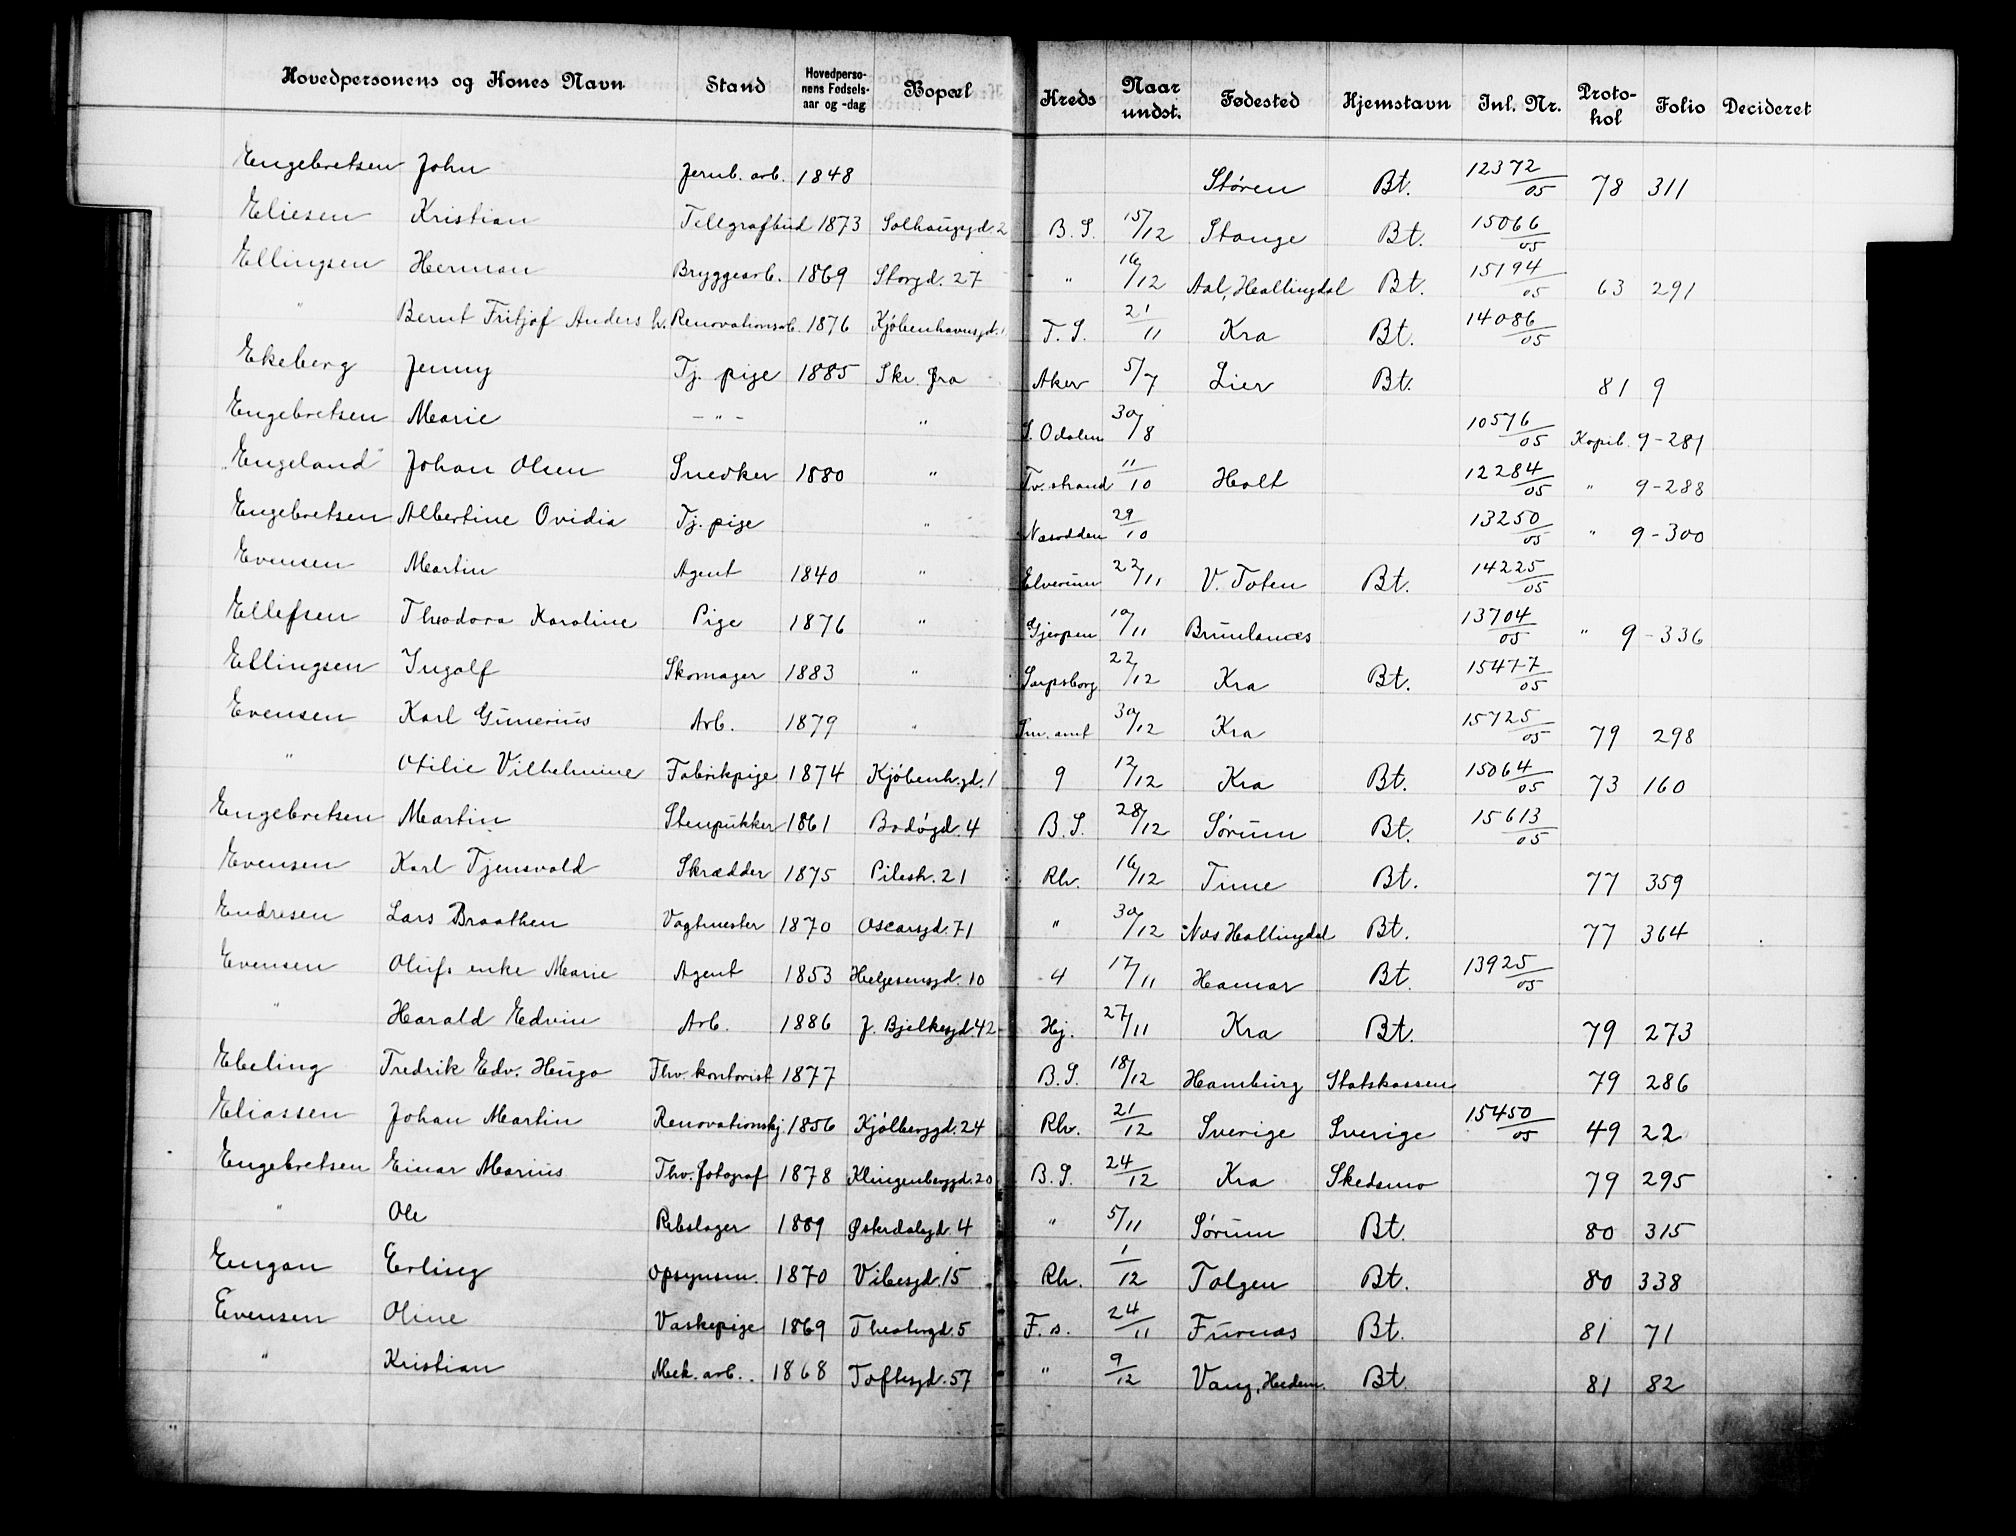 Hovedpersonens og Kones Navn Stand Hovedpersonens Fødselsaar og -dag Bopæl Kreds Naar undst. Fødested Hjemstavn Inl. Nr. Protokol Folio Decideret
Engebretsen John Jernb. arb. 1848 Støren Bt. 12372/05 78 311
Eliesen Kristian Telegrafbud 1873 Solhauggd. 2 B. S. 15/12 Stange Bt. 15066/05
Ellingsen Herman Bryggearb. 1869 Storgd. 27 " 16/12 Aal, Hallingdal Bt. 15194/05 63 291
" Bernt Fritjof Anders h. Renovationsarb. 1876 Kjøbenhavnsgd. 1 T. S. 21/11 Kra Bt. 14086/05
Ekeberg Jenny Tj. pige 1885 Skr. fra Aker 5/7 Lier Bt. 81 9
Engebretsen Marie - " - " S. Odalen 30/8 10576/05 Kopib. 9-281
"Engeland" Johan Olsen Snedker 1880 " Tv. strand 11/10 Holt 12284/05 " 9-288
Engebretsen Albertine Ovidia Tj. pige " Nesodden 29/10 13250/05 " 9-300
Evensen Martin Agent 1840 " Elverum 22/11 V. Toten Bt. 14225/05
Ellefsen Theodora Karoline Pige 1876 " Gjerpen 10/11 Brunlanes 13704/05 " 9-336
Ellingsen Ingolf Skomager 1883 " Sarpsborg 22/12 Kra Bt. 15477/05
Evensen Karl Gunerius Arb. 1879 " Sm. amt 30/12 Kra 15725/05 79 298
" Otilie Vilhelmine Fabrikpige 1874 Kjøbenh.gd. 1 9 12/12 Kra Bt. 15064/05 73 160
Engebretsen Martin Stenpukker 1861 Bodøgd. 4 B. S. 28/12 Sørum Bt. 15613/05
Evensen Karl Tjensvold Skrædder 1875 Pilestr. 21 Rh. 16/12 Time Bt. 77 359
Endresen Lars Braathen Vagtmester 1870 Oscarsgd. 71 " 30/12 Nes Hallingdal Bt. 77 364
Evensen Olufs enke Marie Agent 1853 Helgesensgd. 10 4 17/11 Hamar Bt. 13925/05
" Harald Edvin Arb. 1886 J. Bjelkesgd 42 Hj. 27/11 Kra Bt. 79 273
Ebeling Fredrik Edv. Hugo Fhv. kontorist 1877 B. S. 18/12 Hamburg Statskassen 79 286
Eliassen Johan Martin Renovationskj. 1856 Kjølberggd. 24 Rh. 21/12 Sverige Sverige 15450/05 49 22
Engebretsen Einar Marius Fhv. fotograf 1878 Klingenberggd. 20 B. S. 24/12 Kra Skedsmo 79 295
" Ole Rebslager 1889 Østerdalsgd. 4 " 5/11 Sørum Bt. 80 315
Engan Erling Opsynsm. 1870 Vibesgd. 15 Rh. 1/12 Tolgen Bt. 80 338
Evensen Oline Vaskepige 1869 Theatergd. 5 F. s. 24/11 Furnes Bt. 81 71
" Kristian Mek. arb. 1868 Toftesgd. 57 " 9/12 Vang, Hedem. Bt. 81 82